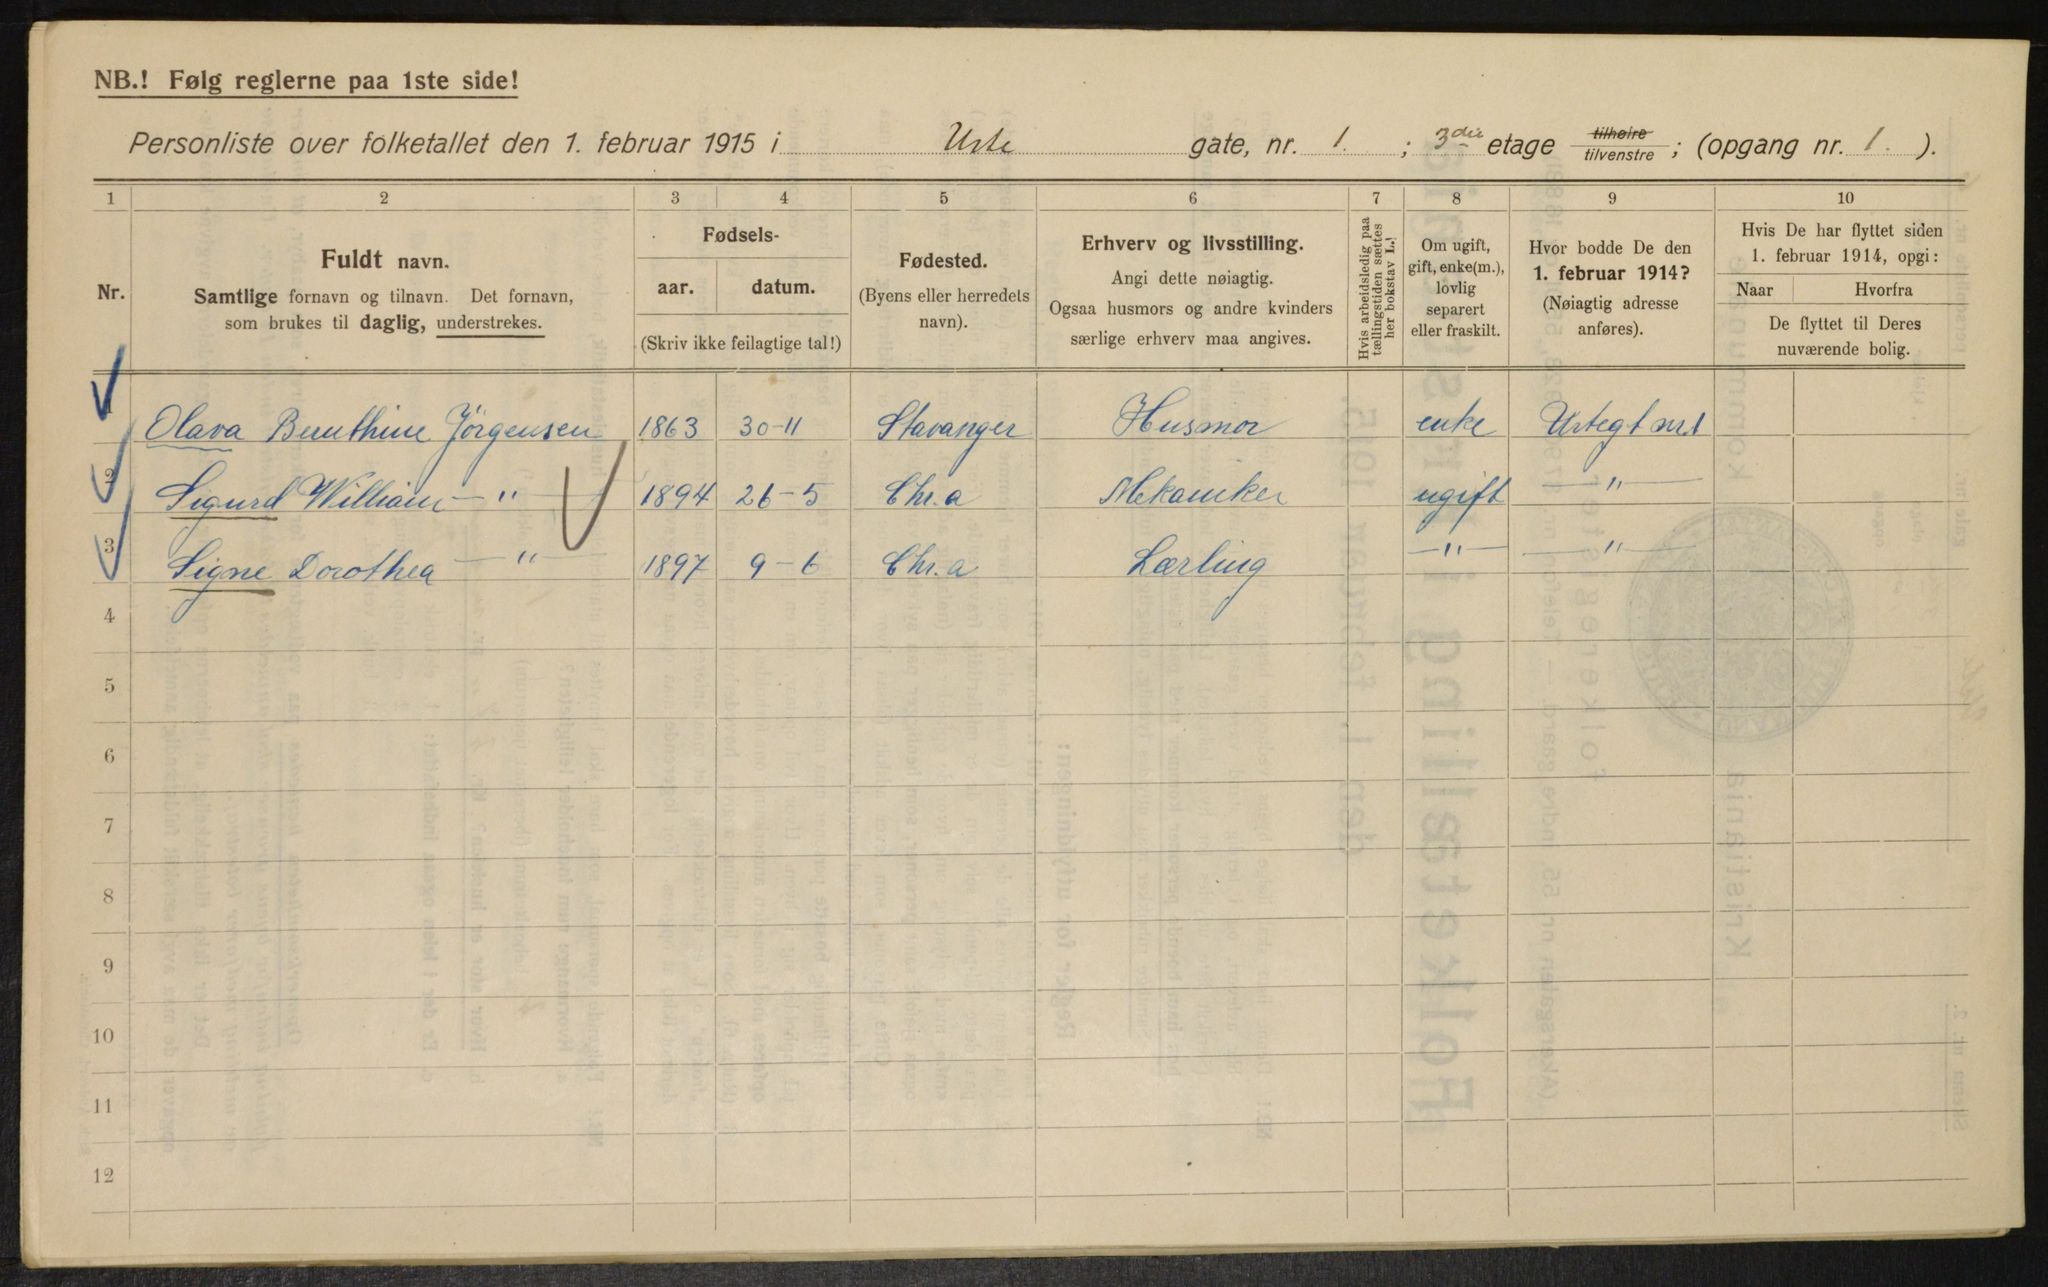 NB.! Følg reglerne paa 1ste side!
Personliste over folketallet den 1. februar 1915 i Urte gate, nr. 1. ; 3die etage tilhøire tilvenstre ; (opgang nr. 1. ).
1 2 3 4 5 6 7 8 9 10
Nr.
Fuldt navn.
Samtlige fornavn og tilnavn. Det fornavn,
som brukes til daglig, understrekes.
Fødsels-
aar. datum.
(Skriv ikke feilagtige tal!)
Fødested.
(Byens eller herredets
navn).
Erhverv og livsstilling.
Angi dette nøiagtig.
Ogsaa husmors og andre kvinders
særlige erhverv maa angives.
Hvis arbeidsledig paa
tællingstiden sættes
her bokstav L.!
Om ugift,
gift, enke(m.),
lovlig
separert
eller fraskilt.
Hvor bodde De den
1. februar 1914?
(Nøiagtig adresse
anføres).
Hvis De har flyttet siden
1. februar 1914, opgi:
Naar Hvorfra
De flyttet til Deres
nuværende bolig.
1 Olava Bernthine Jörgensen 1863 30-11 Stavanger Husmor enke Urtegt nr. 1
2 Sigurd William —"— 1894 26-5 Chr.a Mekaniker ugift —"—
3 Signe Dorothea —"— 1897 9-6 Chr.a Lærling —"— —"—
4
5
6
7
8
9
10
11
12